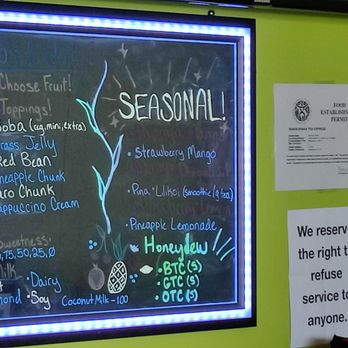 Choose Fruit!
Toppings!
Boba (reg, mini, extra)
Grass Jelly
Red Bean
Pineapple Chunk
Taro Chunk
Cappuccino Cream
Sweetness:
75, 50, 25, 0
Milk
Dairy
Almond • Soy Coconut Milk -100
SEASONAL!
• Strawberry Mango
• Pina "Lilikoi (smoothie/g tea)
• Pineapple Lemonade
Honeydew
• BTC (S)
• GTC (S)
• OTC (S)
FOOD
ESTABLISHMENT
PERMIT
We reserve
the right t
refuse
service to
anyone.